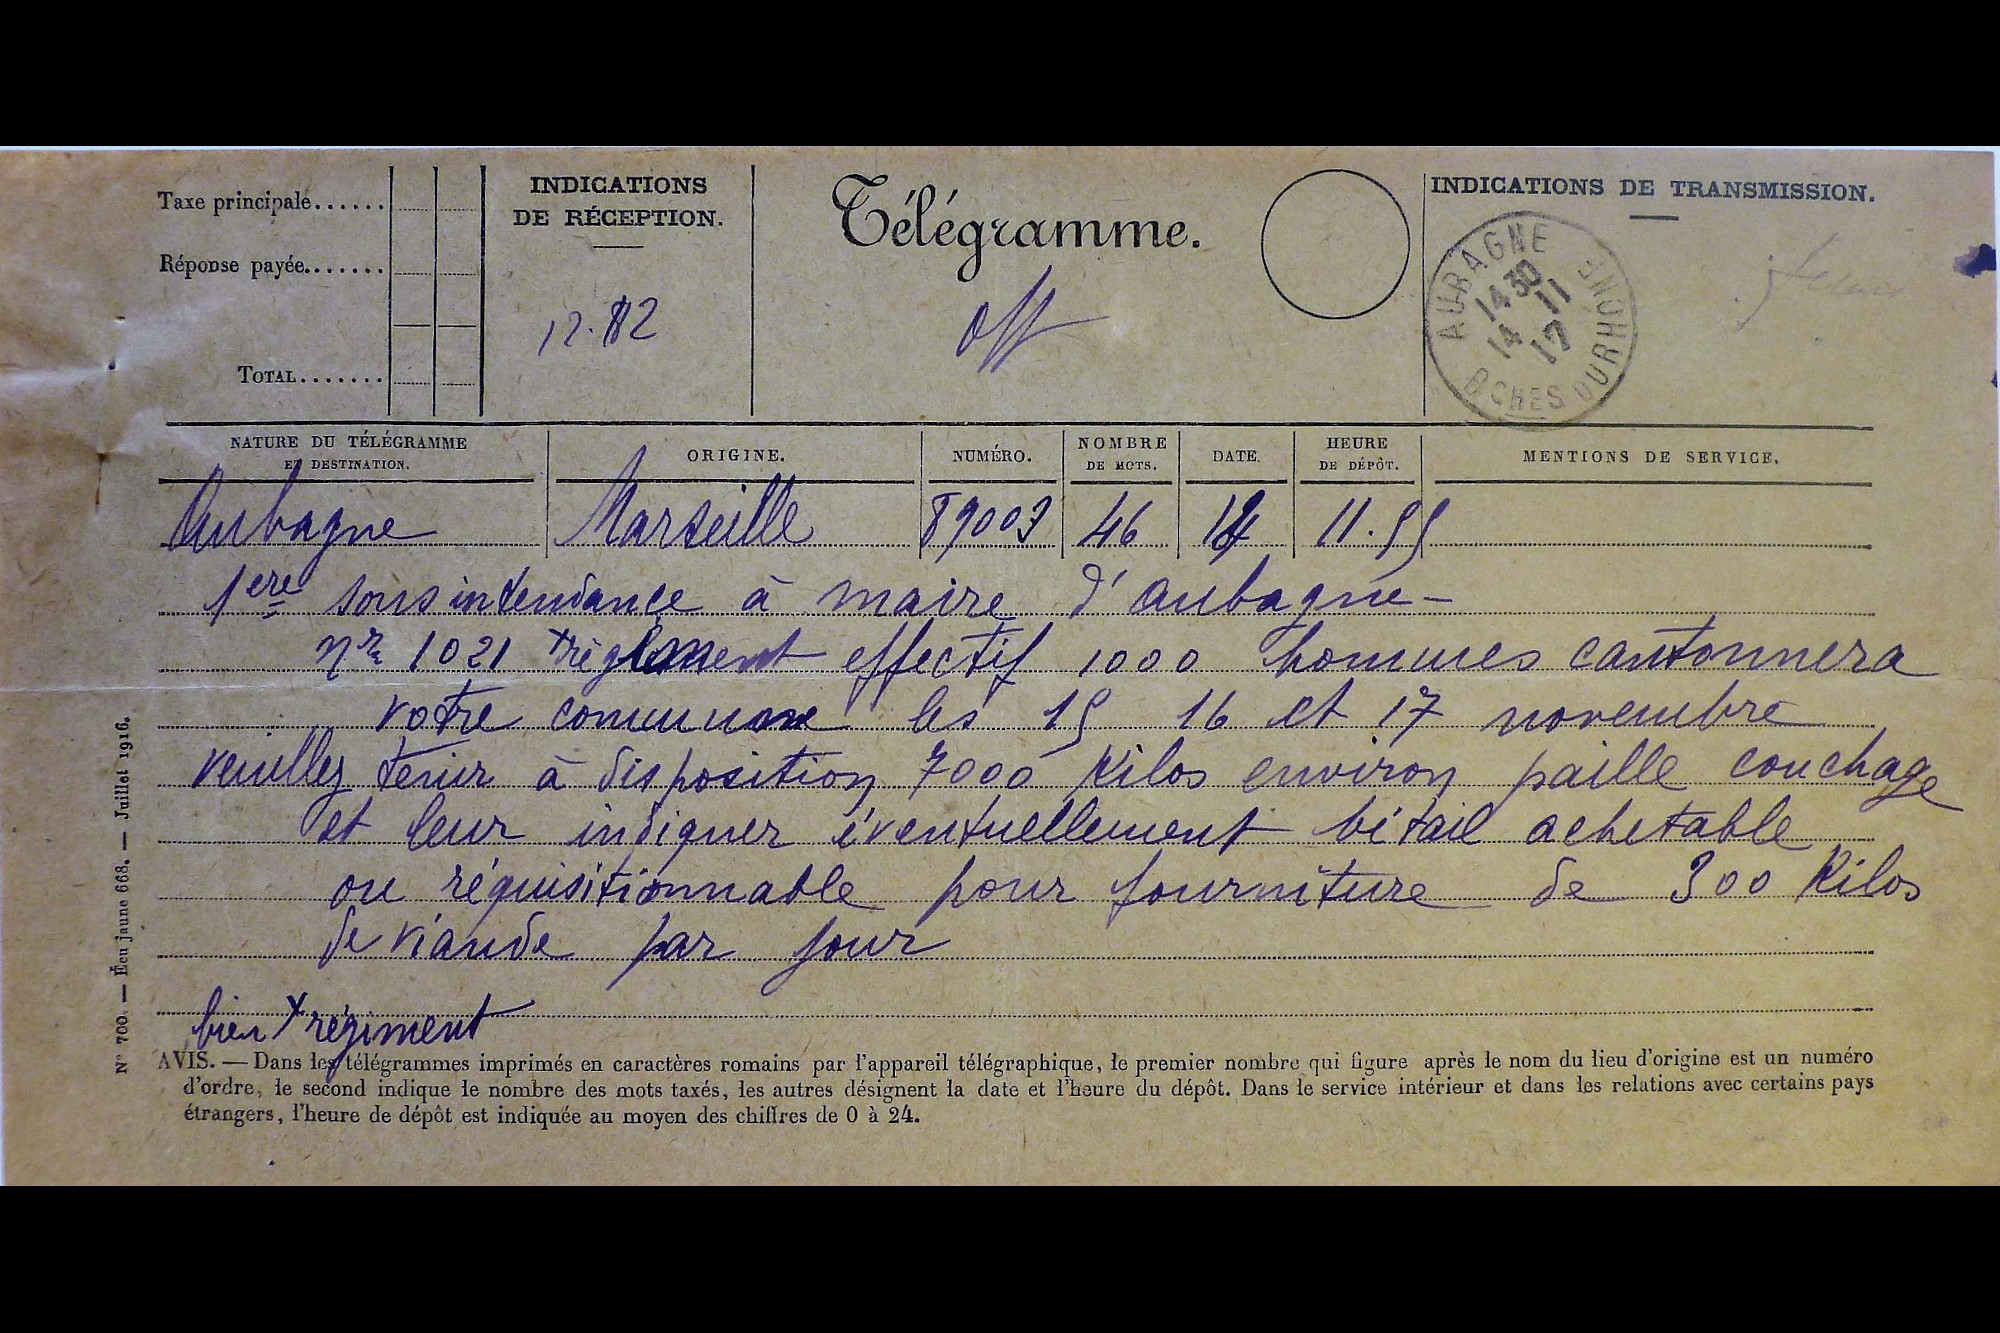 Taxe principale......
Réponse payée.......
TOTAL.......
INDICATIONS
DE RÉCEPTION.
Télégramme.
Off
INDICATIONS DE TRANSMISSION.
AUBAGNE
14 30
14 11
17
BCHES DU RHONE
NATURE DU TÉLÉGRAMME
ET DESTINATION.
ORIGINE.
NUMÉRO.
NOMBRE
DE MOTS.
DATE.
HEURE
DE DÉPÔT.
MENTIONS DE SERVICE.
Aubagne Marseille 89003 46 14 11.55
1ere sousintendance à maire d'aubagne -
nr 1021 x règlement effectif 1000 hommes cantonnera
votre commune les 15 16 et 17 novembre
veuillez tenir à disposition 7000 kilos environ paille couchage
et leur indiquer éventuellement bétail achetable
ou réquisitionnable pour fourniture de 300 kilos
de viande par jour
bien x régiment
AVIS. — Dans les télégrammes imprimés en caractères romains par l'appareil télégraphique, le premier nombre qui figure après le nom du lieu d'origine est un numéro
d'ordre, le second indique le nombre des mots taxés, les autres désignent la date et l'heure du dépôt. Dans le service intérieur et dans les relations avec certains pays
étrangers, l'heure de dépôt est indiquée au moyen des chiffres de 0 à 24.
N° 700. — Écu jaune 668. — Juillet 1916.